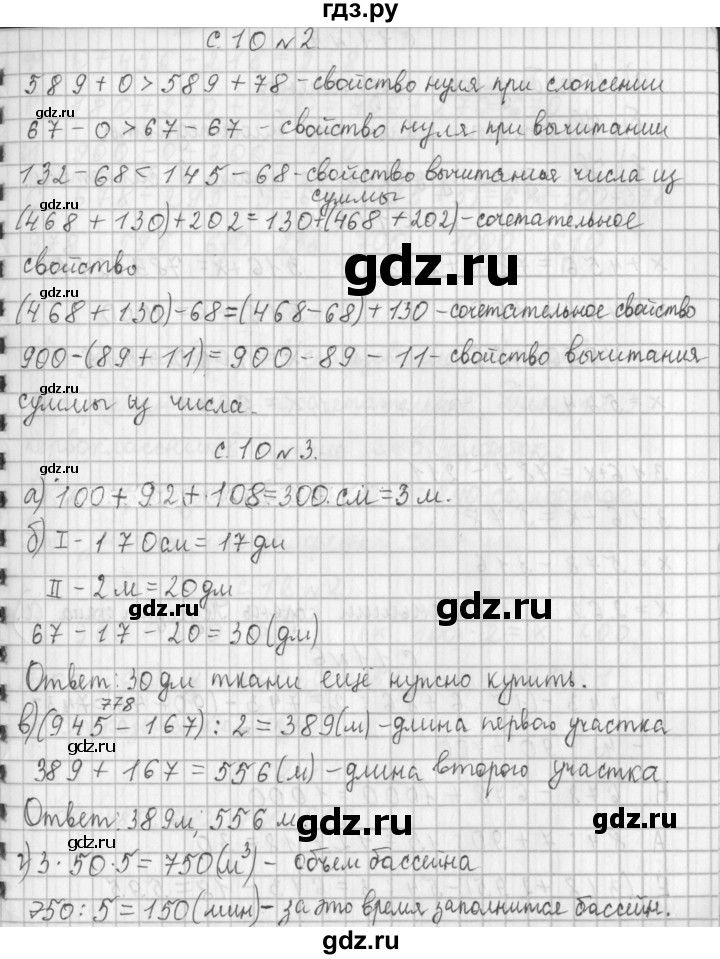 гдз.ру
с. 10 №2
589 + 0 > 589 + 78 - свойство нуля при сложении
gdz.ru
67 - 0 > 67 - 67 - свойство нуля при вычитании
132 - 68 < 145 - 68 - свойство вычитания числа из
суммы
gdz.ru
(468 + 130) + 202 = 130 + (468 + 202) - сочетательное
свойство
gdz.ru
gdz.ru
(468 + 130) - 68 = (468 - 68) + 130 - сочетательное свойство
900 - (89 + 11) = 900 - 89 - 11 - свойство вычитания
gdz.ru
суммы из числа.
с. 10 №3.
gdz.ru
а) 100 + 92 + 108 = 300 см = 3 м.
б) I - 170 см = 17 дм
gdz.ru
II - 2 м = 20 дм
gdz.ru
67 - 17 - 20 = 30 (дм)
gdz.ru
Ответ: 30 дм ткани ещё нужно купить.
778
в) (945 - 167) : 2 = 389 (м) - длина первого участка
gdz.ru
389 + 167 = 556 (м) - длина второго участка.
Ответ: 389 м; 556 м
gdz.ru
gdz.ru
г) 3 · 50 · 5 = 750 (м³) - объем бассейна
gdz.ru
750 : 5 = 150 (мин) - за это время заполнится бассейн.
gdz.ru